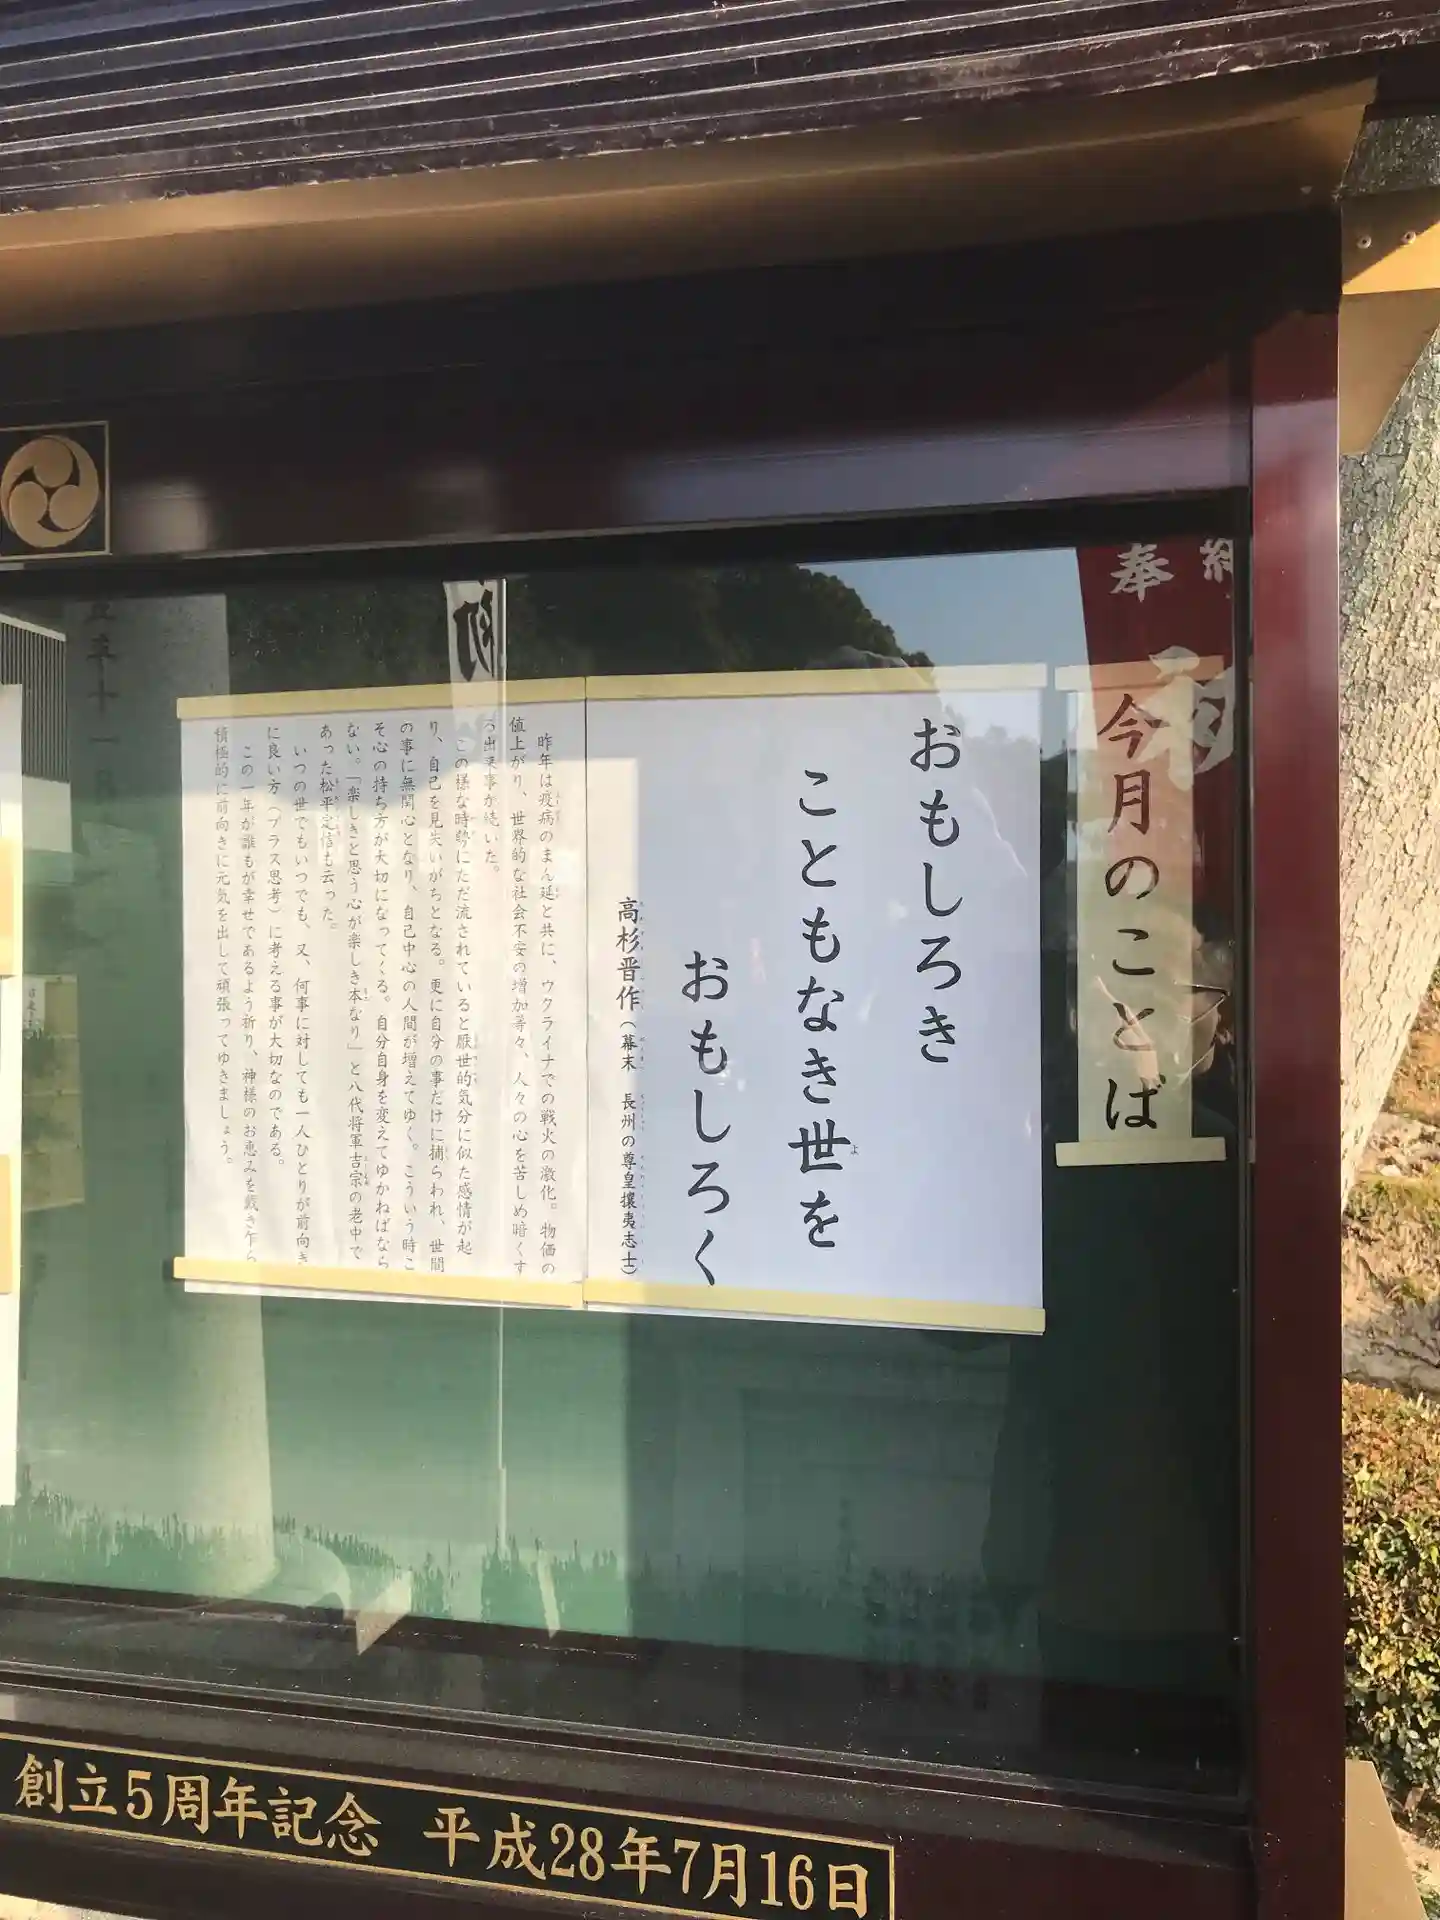 今月のことば
おもしろき
こともなき世を
おもしろく
高杉晋作(幕末 長州の尊皇攘夷志士)
昨年は疫病のまん延と共に、ウクライナでの戦火の激化。物価の
値上がり、世界的な社会不安の増加等々、人々の心を苦しめ暗くす
る出来事が続いた。
この様な時勢にただ流されていると厭世的気分に似た感情が起
り、自己を見失いがちとなる。更に自分の事だけに捕らわれ、世間
の事に無関心となり、自己中心の人間が増えてゆく。こういう時こ
そ心の持ち方が大切になってくる。自分自身を変えてゆかねばなら
ない。「楽しきと思う心が楽しき本なり」と八代将軍吉宗の老中で
あった松平定信も云った。
いつの世でもいつでも、又、何事に対しても一人ひとりが前向き
に良い方(プラス思考)に考える事が大切なのである。
この一年が誰もが幸せであるよう祈り、神様のお恵みを戴き乍ら
積極的に前向きに元気を出して頑張ってゆきましょう。
奉納
初
創立5周年記念 平成28年7月16日